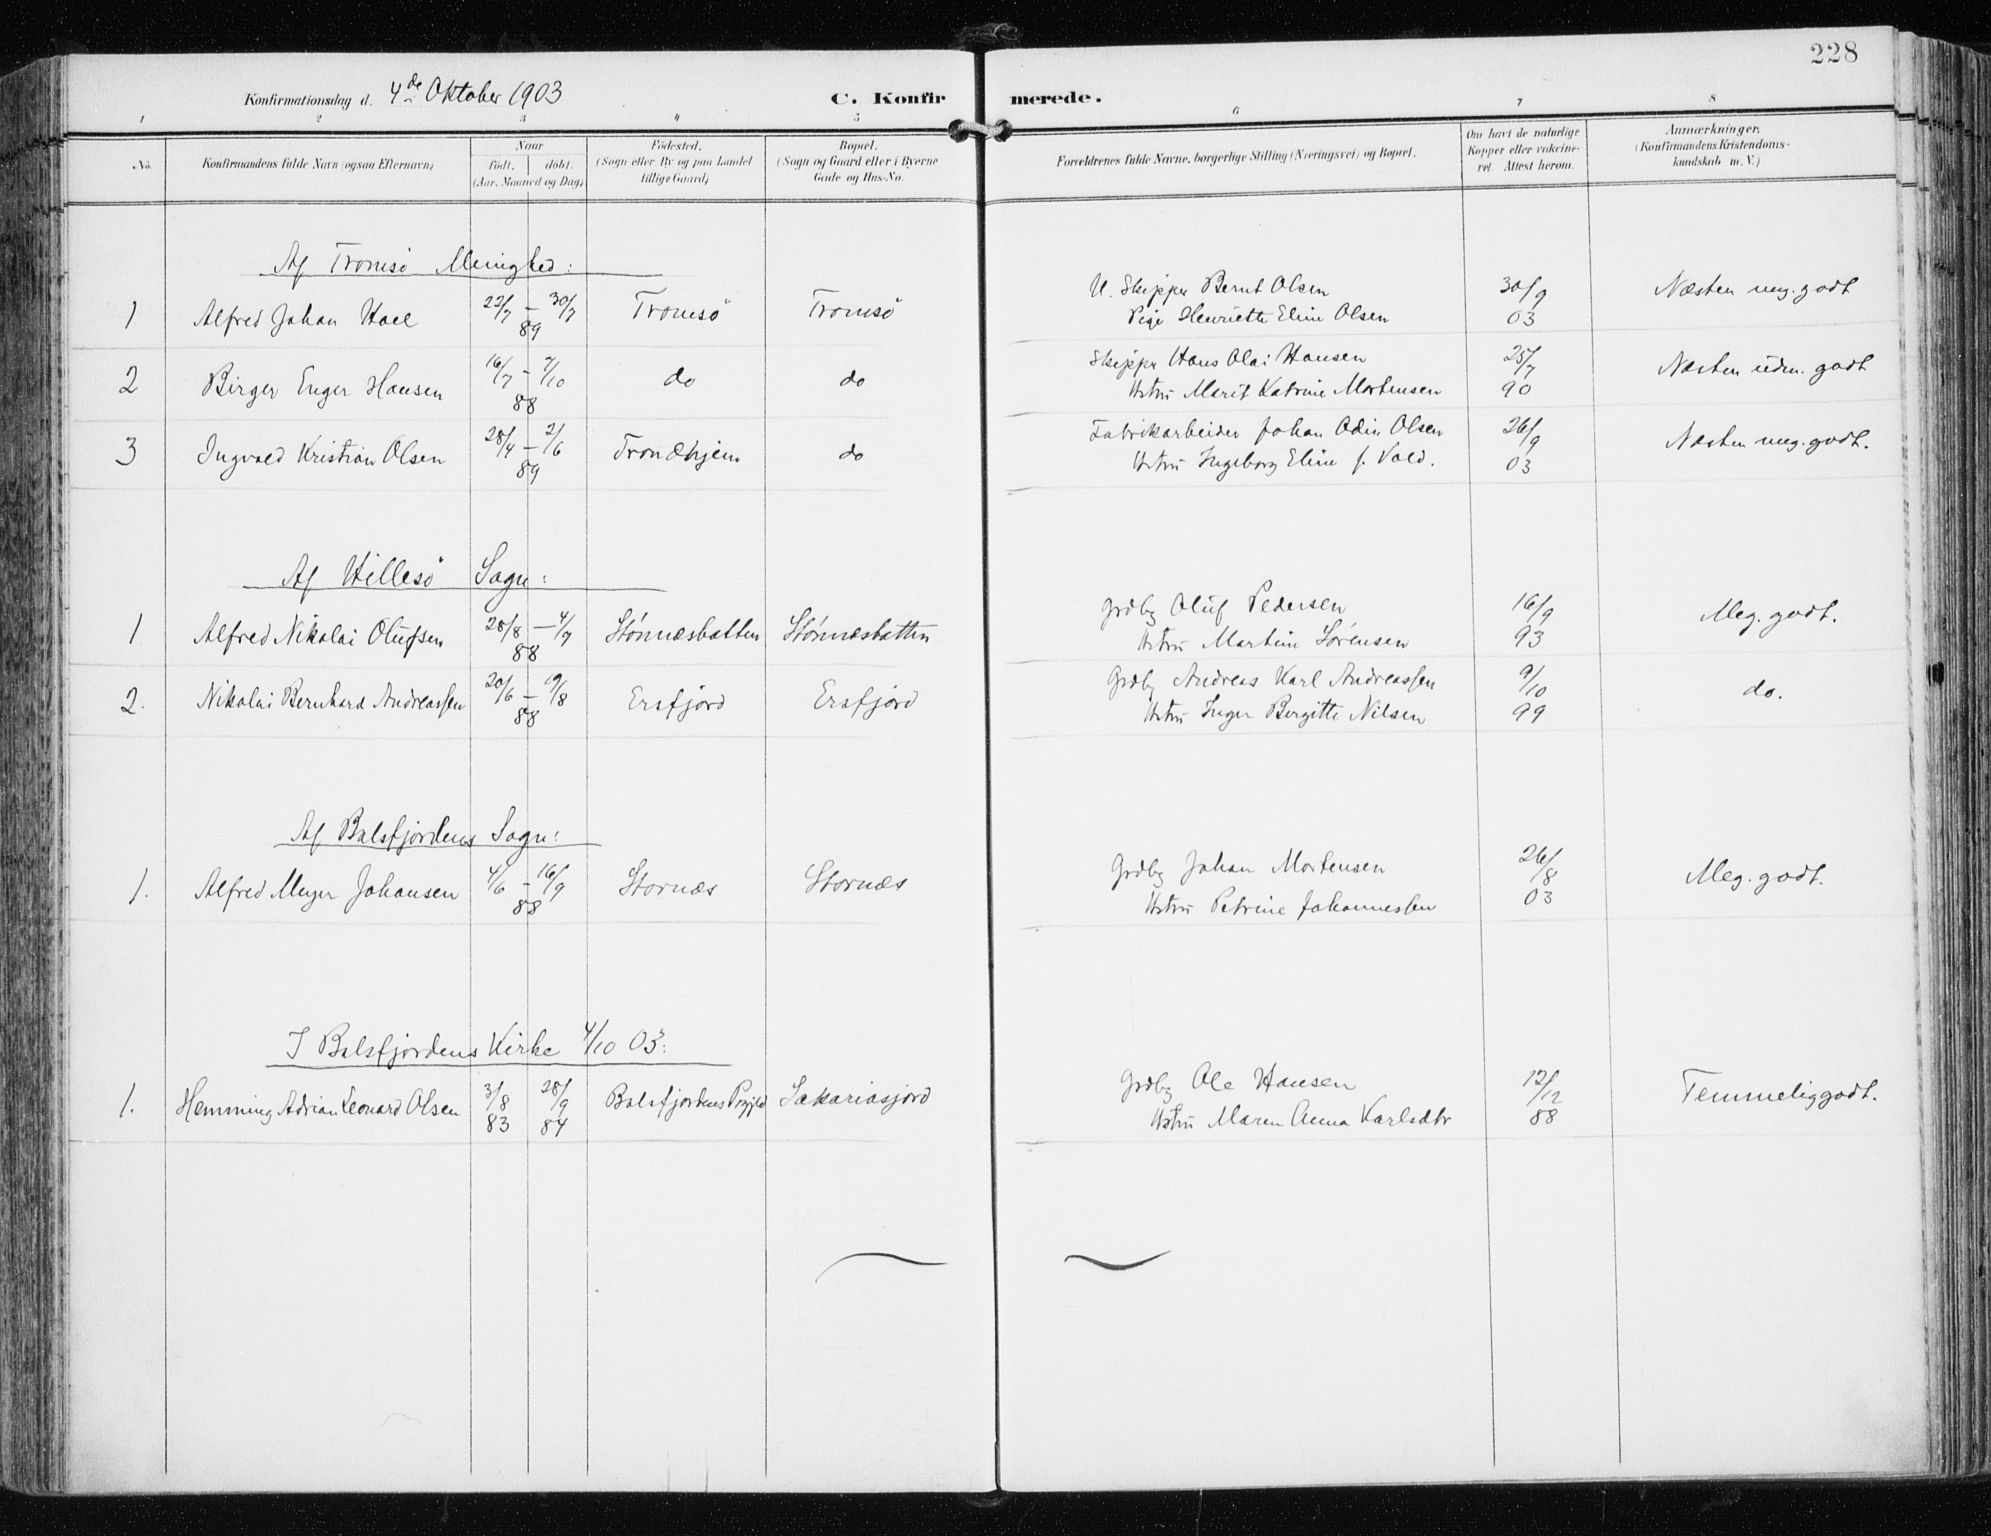 228
Konfirmationsdag d. 4de Oktober 1903 C. Konfirmerede.
1 2 3 4 5 6 7 8
No. Konfirmandens fulde Navn (ogsaa Efternavn) Naar født. døbt. (Aar, Maaned og Dag) Fødested. (Sogn eller By og paa Landet tillige Gaard) Bopæl. (Sogn og Gaard eller i Byerne Gade og Hus-No. Forældrenes fulde Navne, borgerlige Stilling (Næringsvei) og Bopæl. Om havt de naturlige Kopper eller vakcineret Attest herom. Anmærkninger. (Konfirmandens Kristendomskundskab m. V.)
Af Tromsö Menighed:
1 Alfred Johan Hoel 22/7 – 30/7 89 Tromsö Tromsö U. Skipper Bernt Olsen 30/9 03 Næsten meg. godt
Pige Henriette Eline Olsen
2 Birger Enger Hansen 16/7 – 7/10 88 do do Skipper Hans Olai Hansen 25/7 90 Næsten udm. godt
Hstru Marit Katrine Mortensen
3 Ingvald Kristian Olsen 28/4 – 2/6 89 Trondhjem do Fabrikarbeider Johan Odin Olsen 26/9 03 Næsten meg. godt.
Hstru Ingeborg Eline f. Vold.
Af Hillesö Sogn:
1 Alfred Nikolai Olufsen 28/8 – 4/9 88 Stönnesbotten Stönnesbotten Grdbg Oluf Pedersen 16/9 93 Meg. godt.
Hstru Martine Sörensen
2. Nikolai Bernhard Andreassen 20/6 – 19/8 88 Ersfjord Ersfjord Grdbg Andreas Karl Andreassen 9/10 99 do.
Hstru Inger Birgitte Nilsen
Af Balsfjordens Sogn:
1. Alfred Meyer Johansen 4/6 – 16/9 88 Stornæs Stornæs Grdbg Johan Mortensen 26/8 03 Meg. godt.
Hstru Petrine Johannessen
I Balsfjordens Kirke 4/10 03:
1. Hemming Adrian Leonard Olsen 3/8 83 28/9 84 Balsfjordens Prgjld Sakariasjord Grdbg Ole Hansen 12/12 88 Temmelig godt.
Hstru Maren Anna Karlsdtr